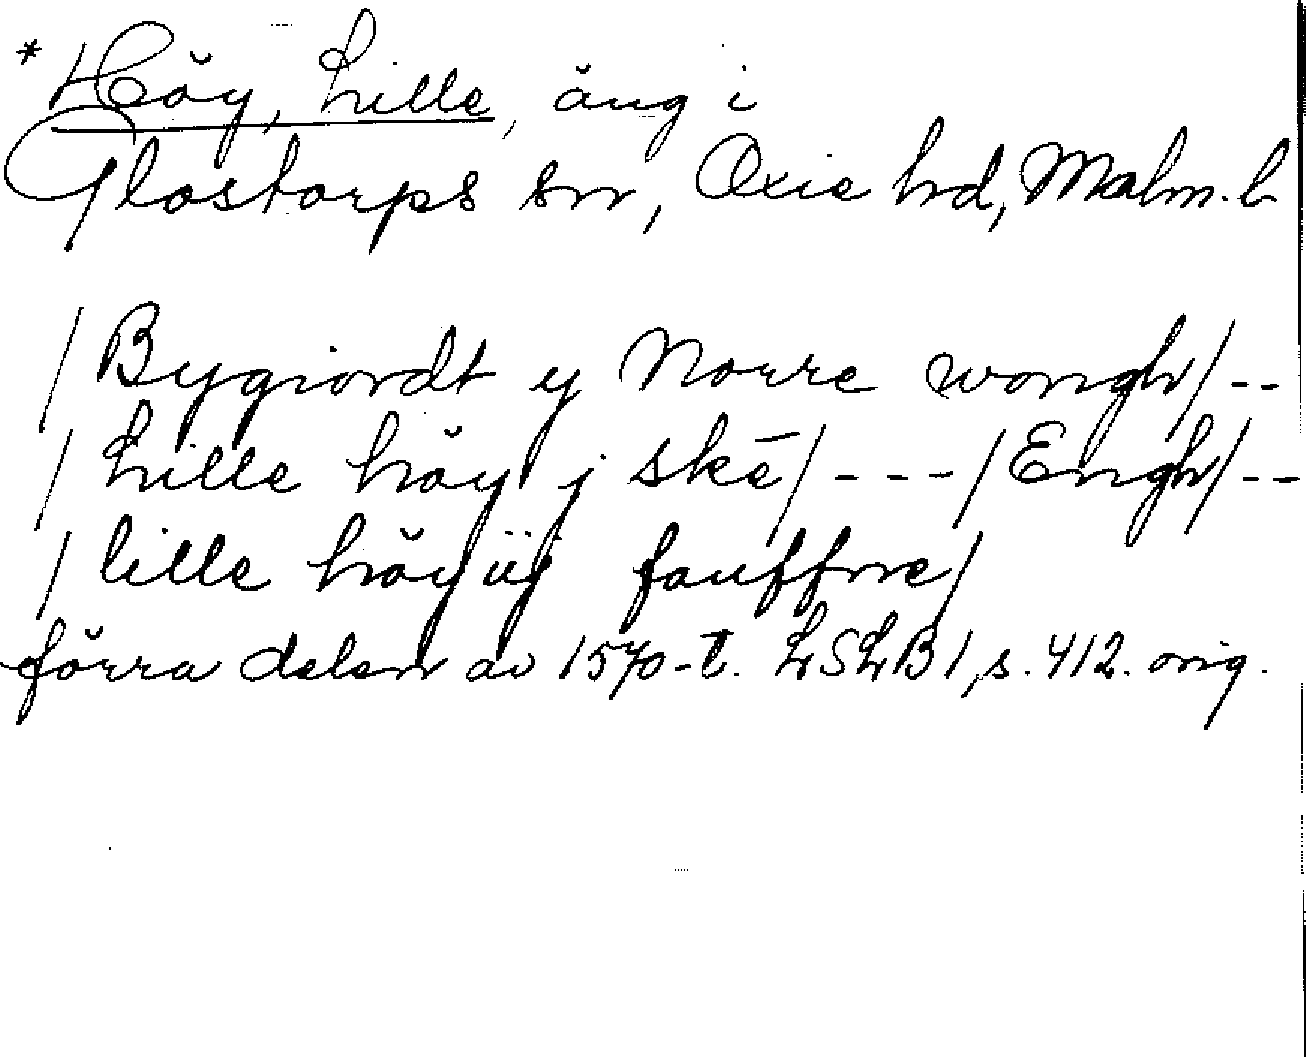 * Höy, Lille, äng i
Glostorps sn, Oxie hd, Malm. l
/ Bygiordt y Norre wongh/--
/ Lille höy j skē/---/Engh/--
/ lille höy iij fauffne/
förra delen av 1570-t. LSLB1, s. 412. orig.